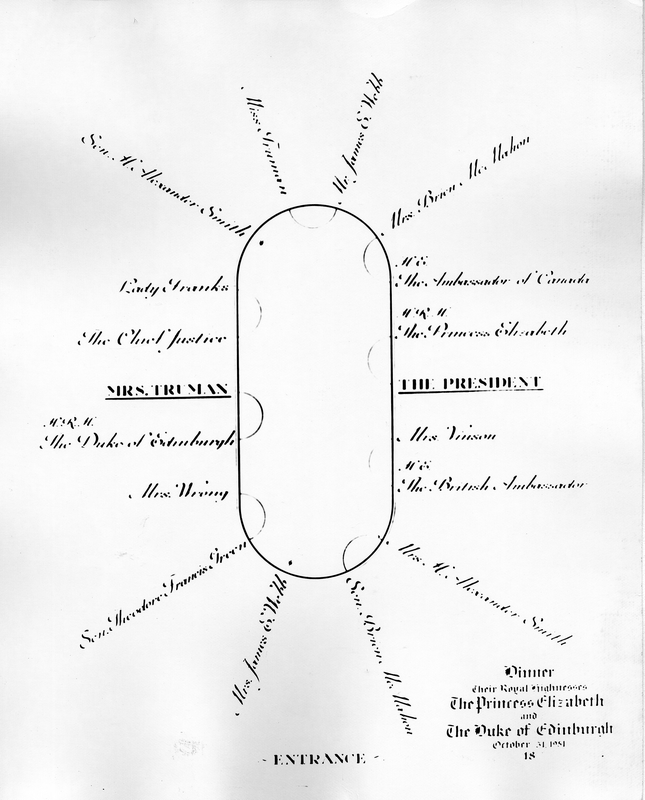 Miss Truman
Mr. James E. Webb
Sen. H. Alexander Smith
Mrs. Brien Mc Mahon
Lady Franks
H.E.
The Ambassador of Canada
The Chief Justice
H.R.H.
The Princess Elizabeth
MRS. TRUMAN
THE PRESIDENT
H.R.H.
The Duke of Edinburgh
Mrs. Vinson
Mrs. Wrong
H.E.
The British Ambassador
Sen. Theodore Francis Green
Mrs. H. Alexander Smith
Mrs. James E. Webb
Sen. Brien Mc Mahon
Dinner
Their Royal Highnesses
The Princess Elizabeth
and
The Duke of Edinburgh
October 31, 1951
18
- ENTRANCE -